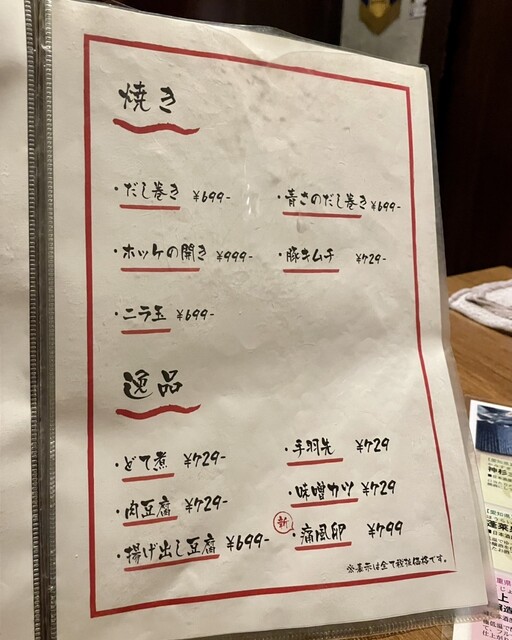 焼き
・だし巻き ¥699-
・青さのだし巻き ¥699-
・ホッケの開き ¥999-
・豚キムチ ¥729-
・ニラ玉 ¥699-
逸品
・どて煮 ¥729-
・手羽先 ¥729
・肉豆腐 ¥729-
・味噌カツ ¥729
・揚げ出し豆腐 ¥699-
新
・痛風卵 ¥799
※表示は全て税抜価格です。